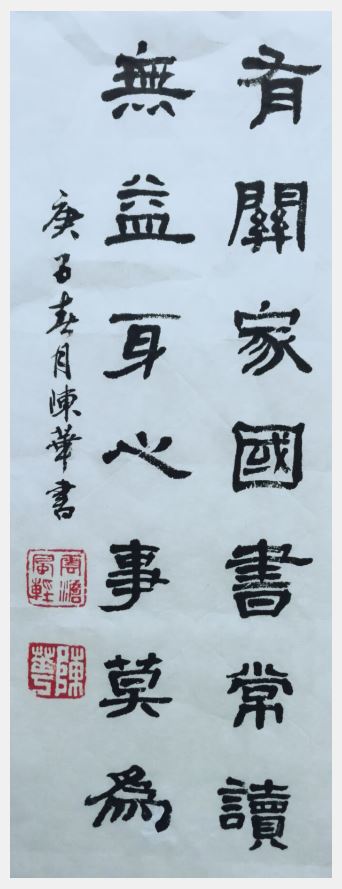 有關家國書常讀
無益身心事莫為
庚子春月陳華書
雲淡風輕
陳華